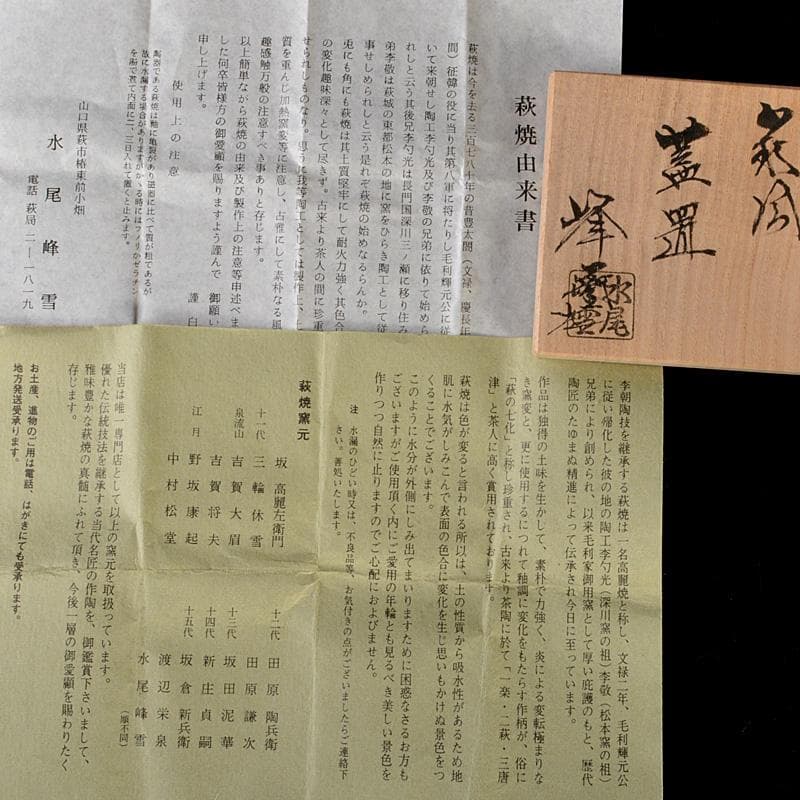 萩焼由来書
萩焼は今を去る三百七八十年の昔豊太閤(文禄、慶長年
間)征韓の役に当り其第八軍に将たりし毛利輝元公に従
いて来朝せし陶工李勺光及び李敬の兄弟に依りて始めら
れしと云う其後兄李勺光は長門国深川三ノ瀬に移り住み
弟李敬は萩城の東部松本の地に窯をひらき陶工として従
事せしめられしと云う是れぞ萩焼の始めなるらんか。
兎にも角にも萩焼は其土質堅牢にして耐火力強く其色合
の変化趣味深々として尽きず。古来より茶人の間に珍重
せられしものなり。思うに我等陶工としては製作上、土
質を重んじ加熱窯変等に注意し、古雅にして素朴なる風
趣感触万般の注意すべき事ありと存じます。
以上簡単ながら萩焼の由来及び製作上の注意等申述べま
した何卒皆様方の御愛顧を賜りますよう謹んで御願い
申し上げます。
謹白
使用上の注意
陶器である萩焼は釉に亀製があり磁器に比べて質が粗であるが
故に水漏する場合がありますがかゝる時にはフノリかゼラチン
を溶て煮て内面に二、三日入れて置くと止みます。
山口県萩市椿東前小畑
水尾峰雪
電話 萩局二―一八一九
萩焼
蓋置
峰雪
水尾
李朝陶技を継承する萩焼は一名高麗焼と称し、文禄二年、毛利輝元公
に従い帰化した彼の地の陶工李勺光(深川窯の祖)李敬(松本窯の祖)
兄弟により創められ、以来毛利家御用窯として厚い庇護のもと、歴代
陶匠のたゆまぬ精進によって伝承され今日に至っています。
作品は独得の土味を生かして、素朴で力強く、炎による変転極まりな
き窯変と、更に使用するにつれて釉調に変化をもたらす作柄が、俗に
「萩の七化」と称し珍重され、古来より茶陶に於て「一楽・二萩・三唐
津」と茶人に高く賞用されております。
萩焼は色が変ると言われる所以は、土の性質から吸水性があるため地
肌に水気がしみこんで表面の色合に変化を生じ思いもかけぬ景色をつ
くることでございます。
このように水分が外側にしみ出てまいりますために困惑なさるお方も
ございますがご使用頂く内にご愛用の年輪とも見るべき美しい景色を
作りつつ自然に止りますのでご心配におよびません。
注 水漏のひどい時又は、不良品等、お気付きの点がございましたらご連絡下
さい。善処いたします。
萩焼窯元
坂高麗左衛門
十一代 三輪休雪
泉流山 吉賀大眉
吉賀将夫
江月 野坂康起
中村松堂
十二代 田原陶兵衛
田原謙次
十三代 坂田泥華
十四代 新庄貞嗣
十五代 坂倉新兵衛
渡辺栄泉
水尾峰雪
(順不同)
当店は唯一専門店として以上の窯元を取扱っています。
優れた伝統技法を継承する当代名匠の作陶を、御鑑賞下さいまして、
雅味豊かな萩焼の真髄にふれて頂き、今後一層の御愛顧を賜わりたく
存じます。
お土産、進物のご用は電話、はがきにても受承ります。
地方発送受承ります。